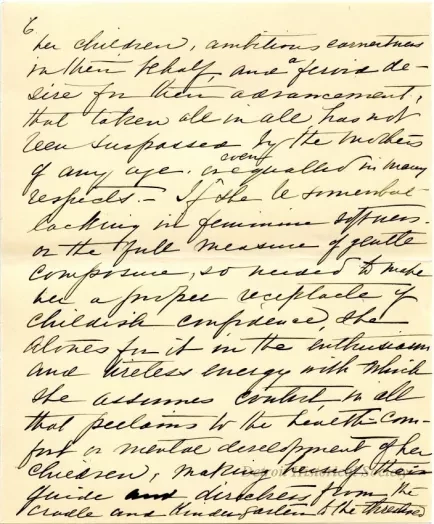 6
her children, ambitious earnestness
in their behalf, and a fervid de-
sire for their advancement,
that taken all in all has not
been surpassed by the mothers
of any age. or even equalled in many
respects. - If she be somewhat
lacking in feminine softness.
or the full measure of gentle
composure, so needed to make
her a proper receptacle of
childish confidence, she
atones for it in the enthusiasm
and tireless energy with which
she assumes control, in all
that pertains to the health-com-
fort or mental development of her
children, making herself their
guide and directress from the
cradle and Kindergarten to the threshold